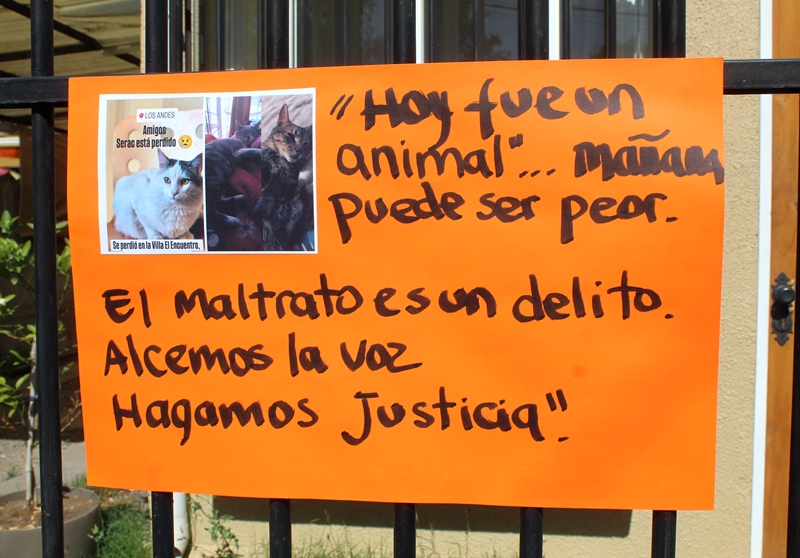 LOS ANDES
Amigos
Serac está perdido 😢
Se perdió en la Villa El Encuentro,
"Hoy fue un
animal"... Mañana
puede ser peor.
El Maltrato es un delito.
Alcemos la voz
Hagamos Justicia".